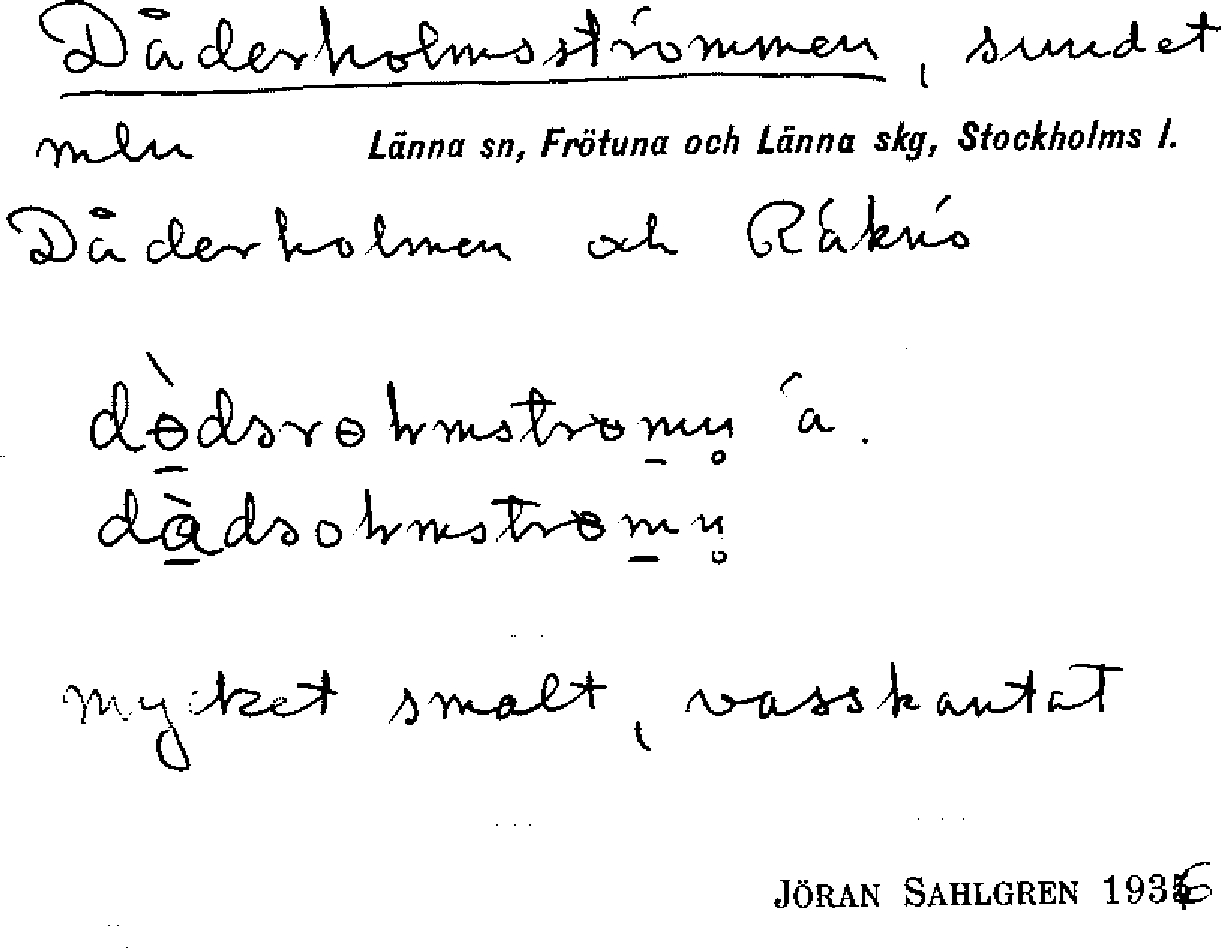 Dåderholmsströmmen, sundet
mln Länna sn, Frötuna och Länna skg, Stockholms l.
Dåderholmen och Räknö
mycket smalt, vasskantat
JÖRAN SAHLGREN 1936